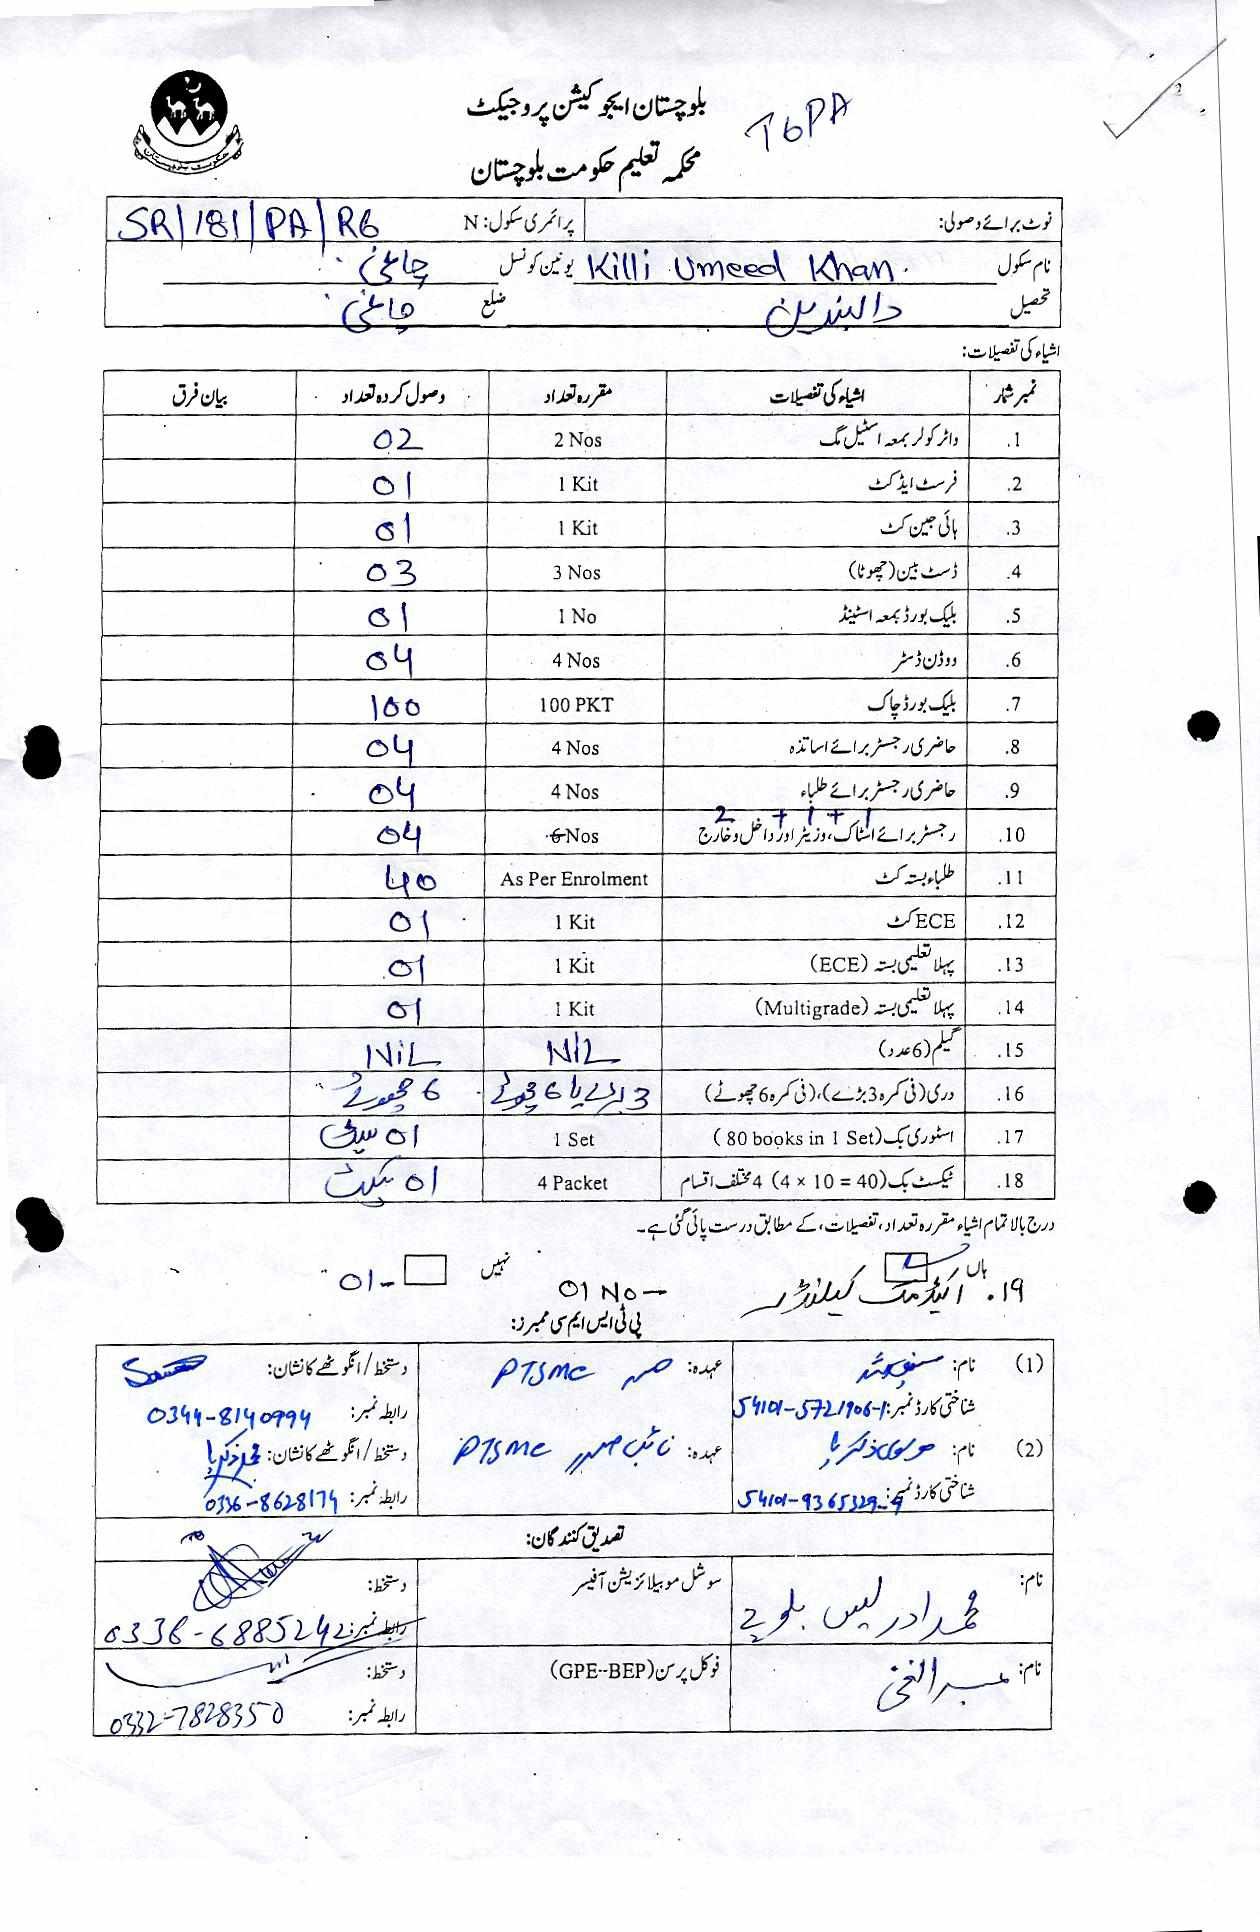 بلوچستان ایجوکیشن پروجیکٹ
T6PA
محکمہ تعلیم حکومت بلوچستان
نوٹ برائے وصولی: پرائمری سکول: N SR/181/PA/R6
نام سکول Killi Umeed Khan یونین کونسل چاغی
تحصیل دالبندین ضلع چاغی
اشیاء کی تفصیلات:
نمبر شمار اشیاء کی تفصیلات مقررہ تعداد وصول کردہ تعداد بیان فرق
.1 واٹر کولر بمعہ اسٹیل مگ 2 Nos 02
.2 فرسٹ ایڈ کٹ 1 Kit 01
.3 ہائی جین کٹ 1 Kit 01
.4 ڈسٹ بین (چھوٹا) 3 Nos 03
.5 بلیک بورڈ بمعہ اسٹینڈ 1 No 01
.6 ووڈن ڈسٹر 4 Nos 04
.7 بلیک بورڈ چاک 100 PKT 100
.8 حاضری رجسٹر برائے اساتذہ 4 Nos 04
.9 حاضری رجسٹر برائے طلباء 4 Nos 04
2 + 1 + 1
.10 رجسٹر برائے اسٹاک، وزیٹر اور داخل و خارج 6 Nos 04
.11 طلباء بستہ کٹ As Per Enrolment 40
.12 ECE کٹ 1 Kit 01
.13 پہلا تعلیمی بستہ (ECE) 1 Kit 01
.14 پہلا تعلیمی بستہ (Multigrade) 1 Kit 01
.15 گیلم (6 عدد) NIL NiL
.16 دری (فی کمرہ 3 بڑے)، (فی کمرہ 6 چھوٹے) 3 بڑے یا 6 چھوٹے 6 چھوٹے
.17 اسٹوری بک (80 books in 1 Set) 1 Set 01 سیٹ
.18 ٹیکسٹ بک (4 × 10 = 40) 4 مختلف اقسام 4 Packet 01 پیکٹ
درج بالا تمام اشیاء مقررہ تعداد، تفصیلات، کے مطابق درست پائی گئی ہے۔
ہاں نہیں
۱۹. اکیڈمک کیلنڈر 01 No — 01-
پی ٹی ایس ایم سی ممبرز:
(1) نام: عہدہ: صدر PTSMC دستخط/انگوٹھے کا نشان:
شناختی کارڈ نمبر: 54101-5721906-1 رابطہ نمبر: 0344-8140994
(2) نام: مولوی ذکریا عہدہ: نائب صدر PTSMC دستخط/انگوٹھے کا نشان: محمد ذکریا
شناختی کارڈ نمبر: 54101-9365329-9 رابطہ نمبر: 0336-8628174
تصدیق کنندگان:
نام: محمد ادریس بلوچ سوشل موبیلائزیشن آفیسر دستخط:
رابطہ نمبر: 0336-6885242
نام: عبدالغنی فوکل پرسن (GPE--BEP) دستخط:
رابطہ نمبر: 0332-7828350